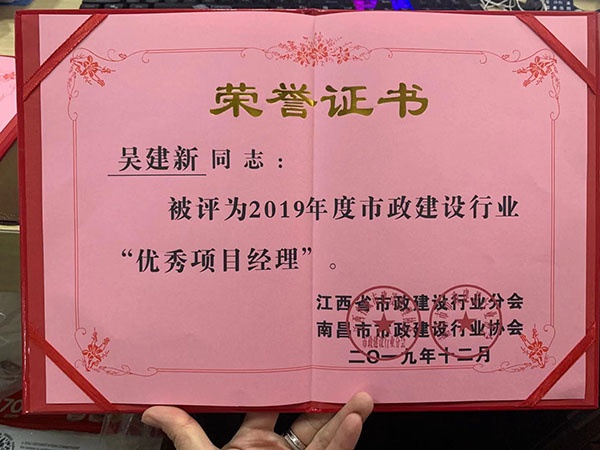 荣誉证书
吴建新同志：
被评为2019年度市政建设行业
“优秀项目经理”。
江西省市政建设行业分会
南昌市市政建设行业协会
二〇一九年十二月
市政建设行业分会